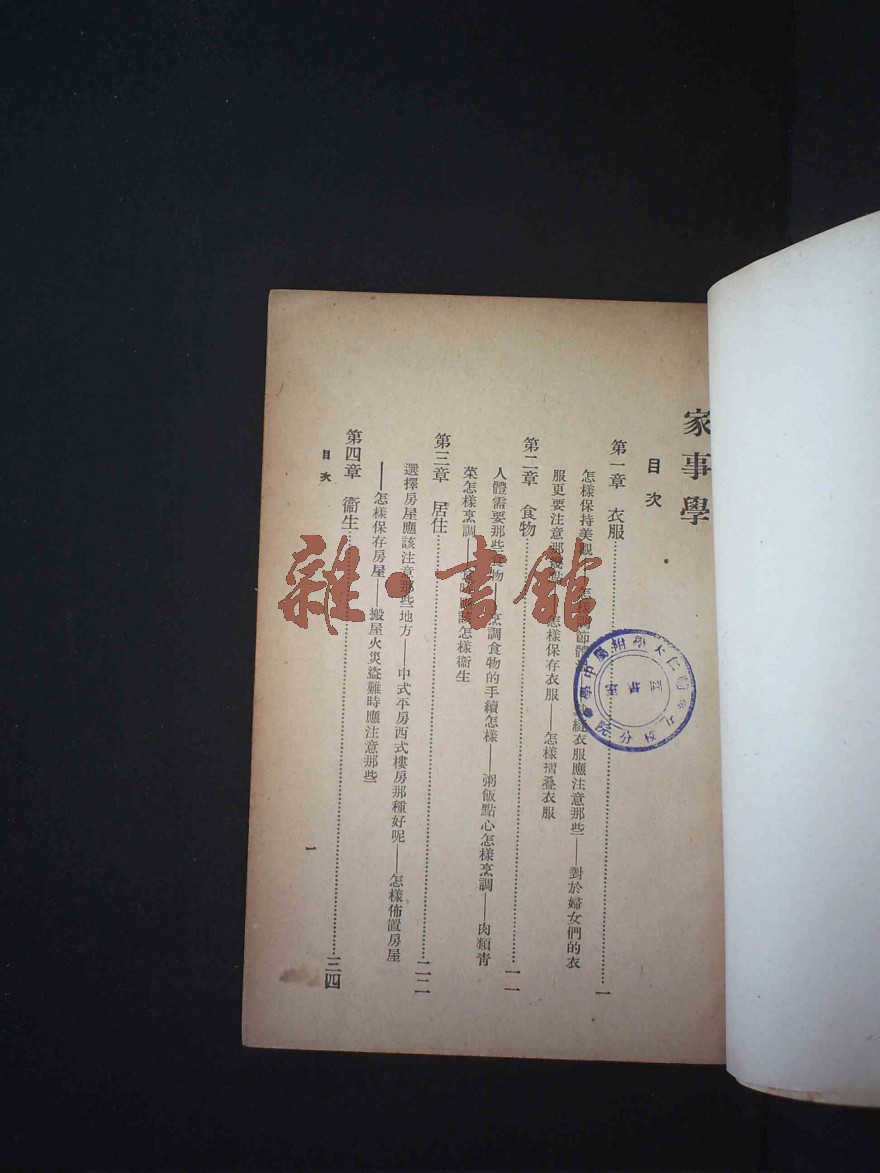 家事學
目次
第一章 衣服……一
怎樣保持美觀——怎樣調節體溫——縫衣服應注意那些——對於婦女們的衣
服更要注意那幾點——怎樣保存衣服——怎樣摺疊衣服
第二章 食物……一一
人體需要那些食物——烹調食物的手續怎樣——粥飯點心怎樣烹調——肉類青
菜怎樣烹調——食時應該怎樣衞生
第三章 居住……二二
選擇房屋應該注意那些地方——中式平房西式樓房那種好呢——怎樣佈置房屋
——怎樣保存房屋——搬屋火災盜難時應注意那些
第四章 衞生……三四
目次
一
雜·書館